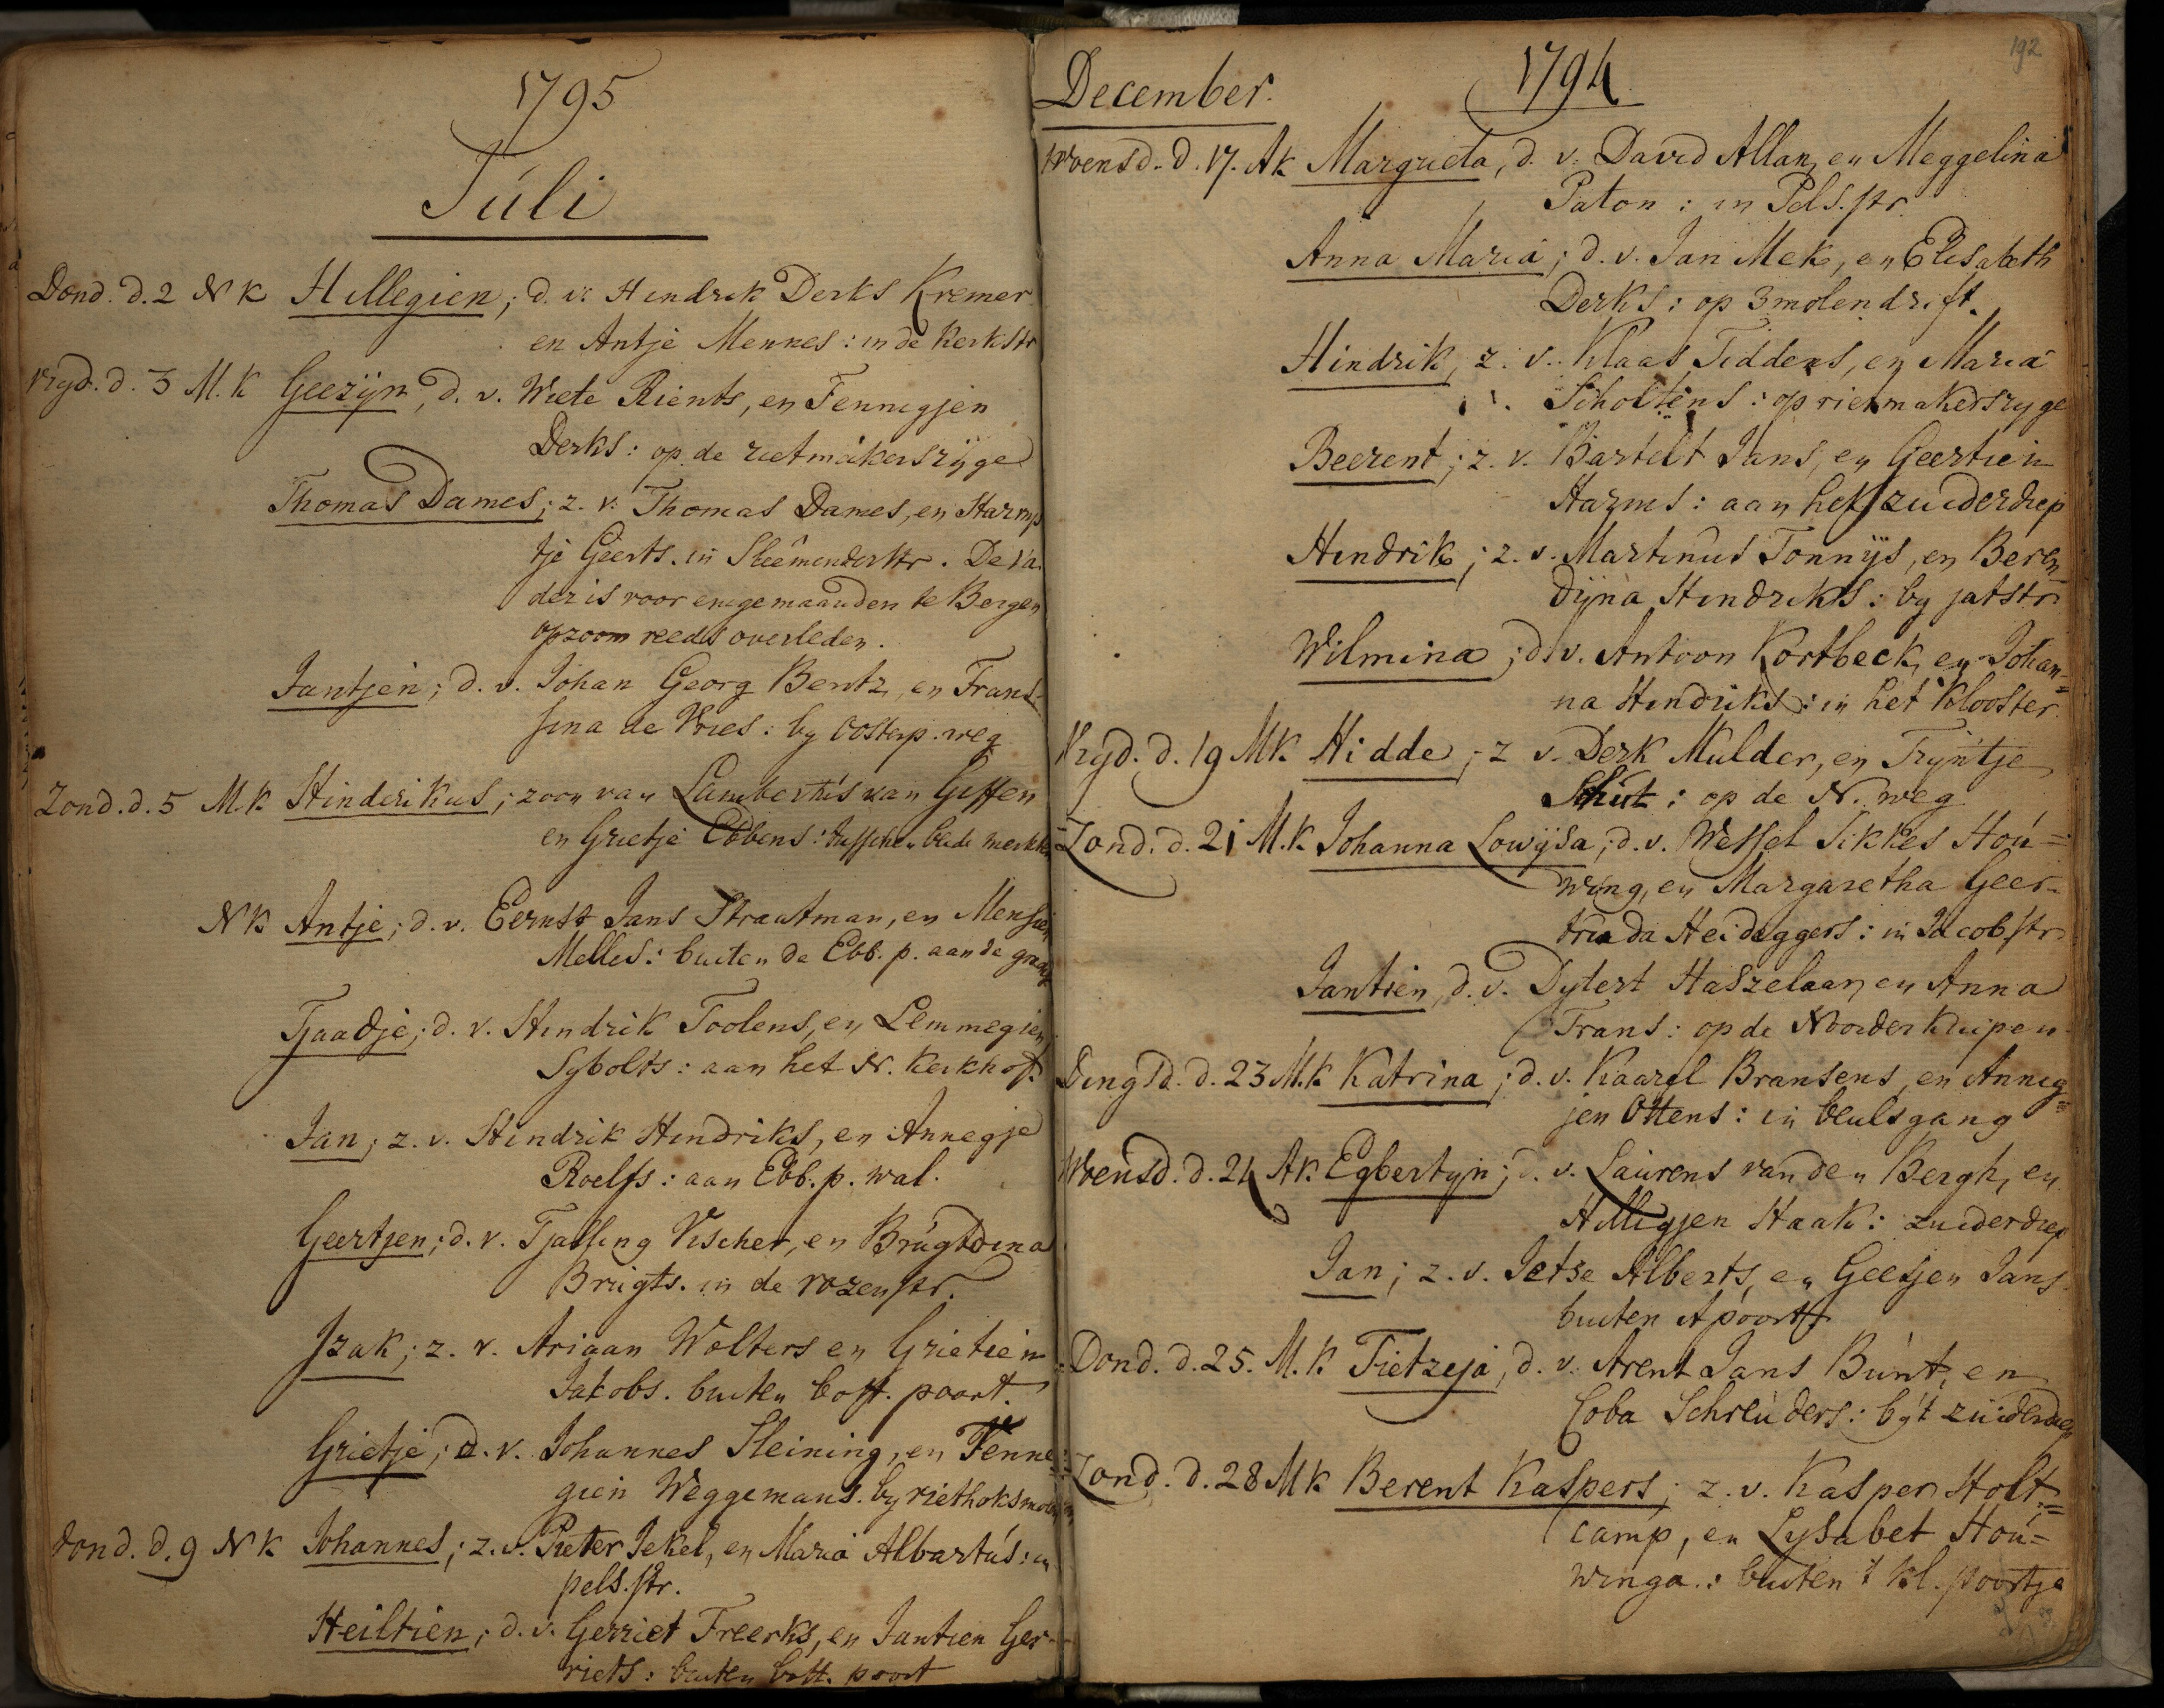 1795
Juli
Dond. d. 2 NK Hillegien; d. v. Hindrik Derks Kremer
en Antje Mennes: in de Kerkstr
vryd. d. 3 M.K Geezijn, d. v. Wiete Rients, en Fennegjen
Derks: op de rietmakersrijge
Thomas Dames; z. v. Thomas Dames, en Harm
tje Geerts. in Steêmenderstr. De Va
der is voor enige maanden te Bergen
opzoom reeds overleden.
Jantjen; d. v. Johan Georg Bentz, en Frans-
sina de Vries: by oosterp. weg
Zond. d. 5 M.K Hinderikus; zoon van Lambertus van Giffen
en Grietje Ebbens: tusschen beide merkten
NK Antje; d. v. Eernst Jans Straatman, en Mensien
Melles: buiten de Ebb. p. aan de gragt
Tjaadje; d. v. Hindrik Toolens, en Lemmegien
Sybolts: aan het N. Kerkhof.
Jan; z. v. Hindrik Hindriks, en Annegje
Roelfs: aan Ebb. p. wal.
Geertjen; d. v. Tjalling Vischer, en Brugtdina
Brugts. in de rozenstr.
Izak; z. v. Ariaan Wolters en Grietien
Jakobs. buiten bott. poort.
Grietje; d. v. Johannes Steining, en Fenne=
gien Weggemans. by riethoksmolen
dond. d. 9 NK Johannes; z. v. Pieter Jekel, en Maria Albartus: in
pels. str.
Heiltien; d. v. Gerriet Freerks, en Jantien Ger-
riets: buiten bott. poort
192
December. 1794
Woensd. d. 17. AK Margrieta, d. v. David Allan, en Meggelina
Paton: in Pels. str.
Anna Maria; d. v. Jan Mek, en Elisabeth
Derks: op 3molendrift.
Hindrik, z. v. Klaas Tiddens, en Maria
Scholtens: op rietmakersryge
Beerent; z. v. Bartelt Jans, en Geertien
Harms: aan het zuiderdiep
Hindrik; z. v. Martinus Tonnijs, en Beren
dijna Hindriks: by jatstr
Wilmina; d. v. Antoon Kortbeck, en Johan=
na Hindriks: in het Klooster
Vryd. d. 19 MK Hidde; z v. Derk Mulder, en Tryntje
Schut: op de N. weg
Zond. d. 21 M.K Johanna Lowijsa; d. v. Wessel Sikkes Hou=
wing, en Margaretha Geer-
truida Heideggers: in Jacobstr
Jantien, d. v. Dytert Haszelaar, en Anna
Frans: op de Noorderkuipen
Dingsd. d. 23 M.K Katrina; d. v. Kaarel Bransens, en Anneg=
jen Ottens: in beulsgang
Woensd. d. 24 AK. Egbertyn; d. v. Laurens van den Bergh, en
Hilligjen Haak: zuiderdiep
Jan; z. v. Jetse Alberts, en Geesjen Jans
buiten A poort
Dond. d. 25. M.K Tietzeja, d. v. Arent Jans Bunt, en
Coba Schreuders: by 't zuiderdiep
Zond. d. 28 MK Berent Kaspers; z. v. Kasper Holt=
camp, en Lysabet Hou=
winga.: buiten 't kl. poortje